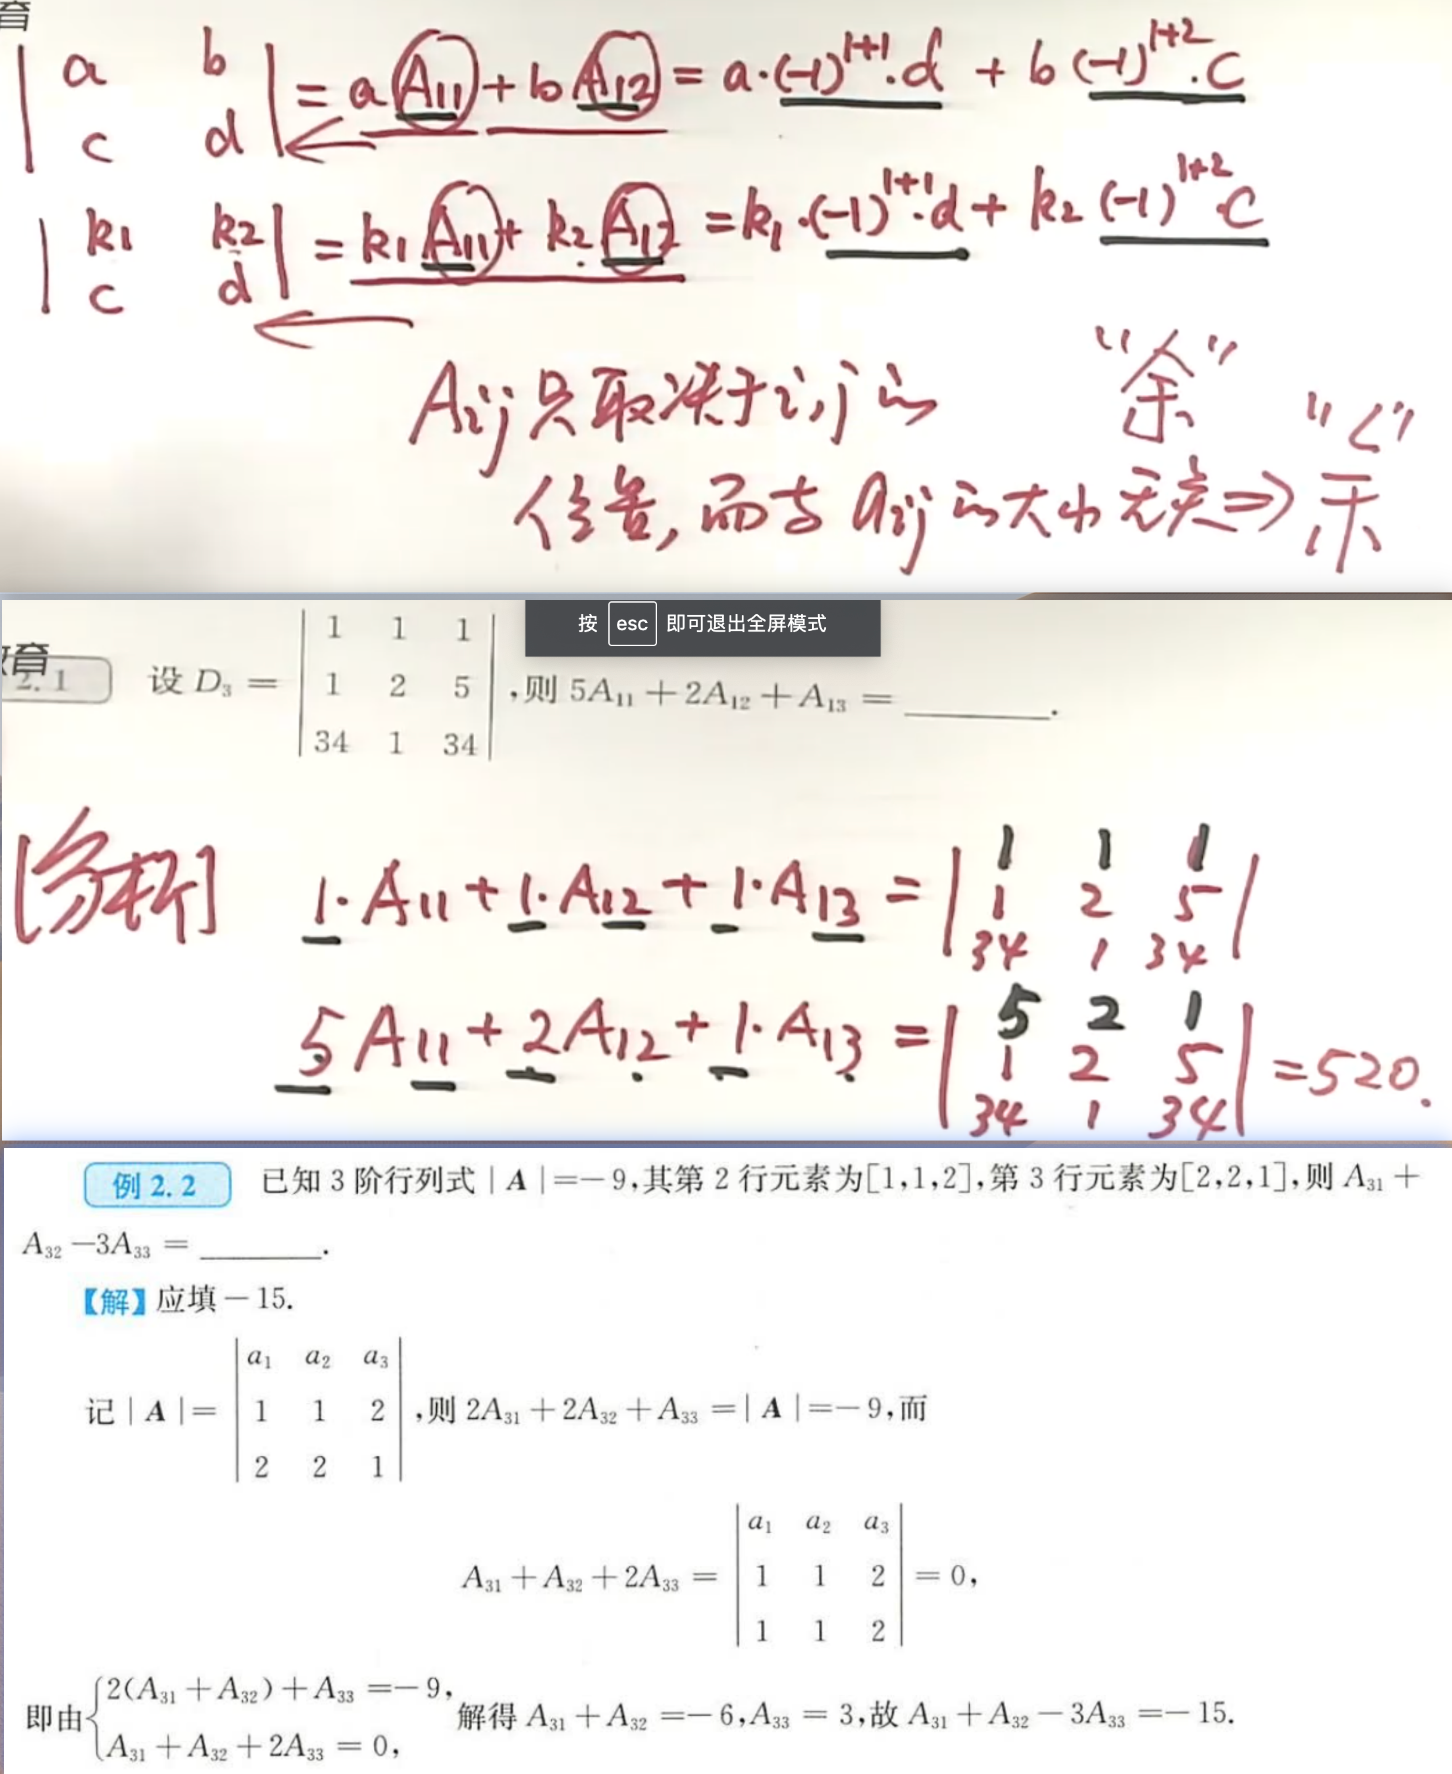 育
| a b |
| c d | = a A₁₁ + b A₁₂ = a·(-1)¹⁺¹·d + b (-1)¹⁺²·c
| k₁ k₂ |
| c d | = k₁ A₁₁ + k₂ A₁₂ = k₁·(-1)¹⁺¹·d + k₂ (-1)¹⁺²·c
Aij 只取决于 i,j 的 “余”
位置, 而与 aij 的大小无关 ⇒
按 esc 即可退出全屏模式
教育
2.1 设 D₃ = | 1 1 1 |
| 1 2 5 | ,则 5A₁₁ + 2A₁₂ + A₁₃ = ______.
| 34 1 34 |
[分析] 1·A₁₁ + 1·A₁₂ + 1·A₁₃ = | 1 1 1 |
| 1 2 5 |
| 34 1 34 |
5A₁₁ + 2A₁₂ + 1·A₁₃ = | 5 2 1 |
| 1 2 5 | = 520.
| 34 1 34 |
例 2.2 已知 3 阶行列式 | A | =− 9,其第 2 行元素为[1,1,2],第 3 行元素为[2,2,1],则 A₃₁ +
A₃₂ −3A₃₃ = ______.
【解】应填 − 15.
| a₁ a₂ a₃ |
记 | A | = | 1 1 2 | ,则 2A₃₁ + 2A₃₂ + A₃₃ = | A | =− 9,而
| 2 2 1 |
| a₁ a₂ a₃ |
A₃₁ + A₃₂ + 2A₃₃ = | 1 1 2 | = 0,
| 1 1 2 |
即由 { 2(A₃₁ + A₃₂) + A₃₃ =− 9,
A₃₁ + A₃₂ + 2A₃₃ = 0, 解得 A₃₁ + A₃₂ =− 6,A₃₃ = 3,故 A₃₁ + A₃₂ − 3A₃₃ =− 15.